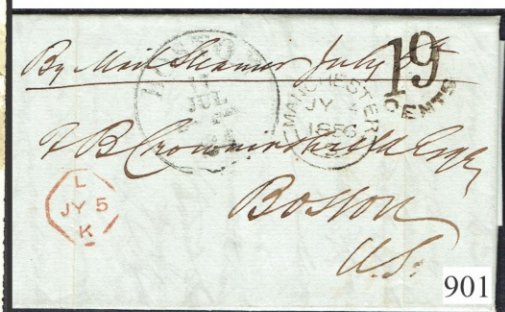 By Mail Steamer July
19
CENTS
BOSTON
JUL
MANCHESTER
JY
1856
B Crowninshield Esq
L
JY 5
K
Boston
U.S.
901